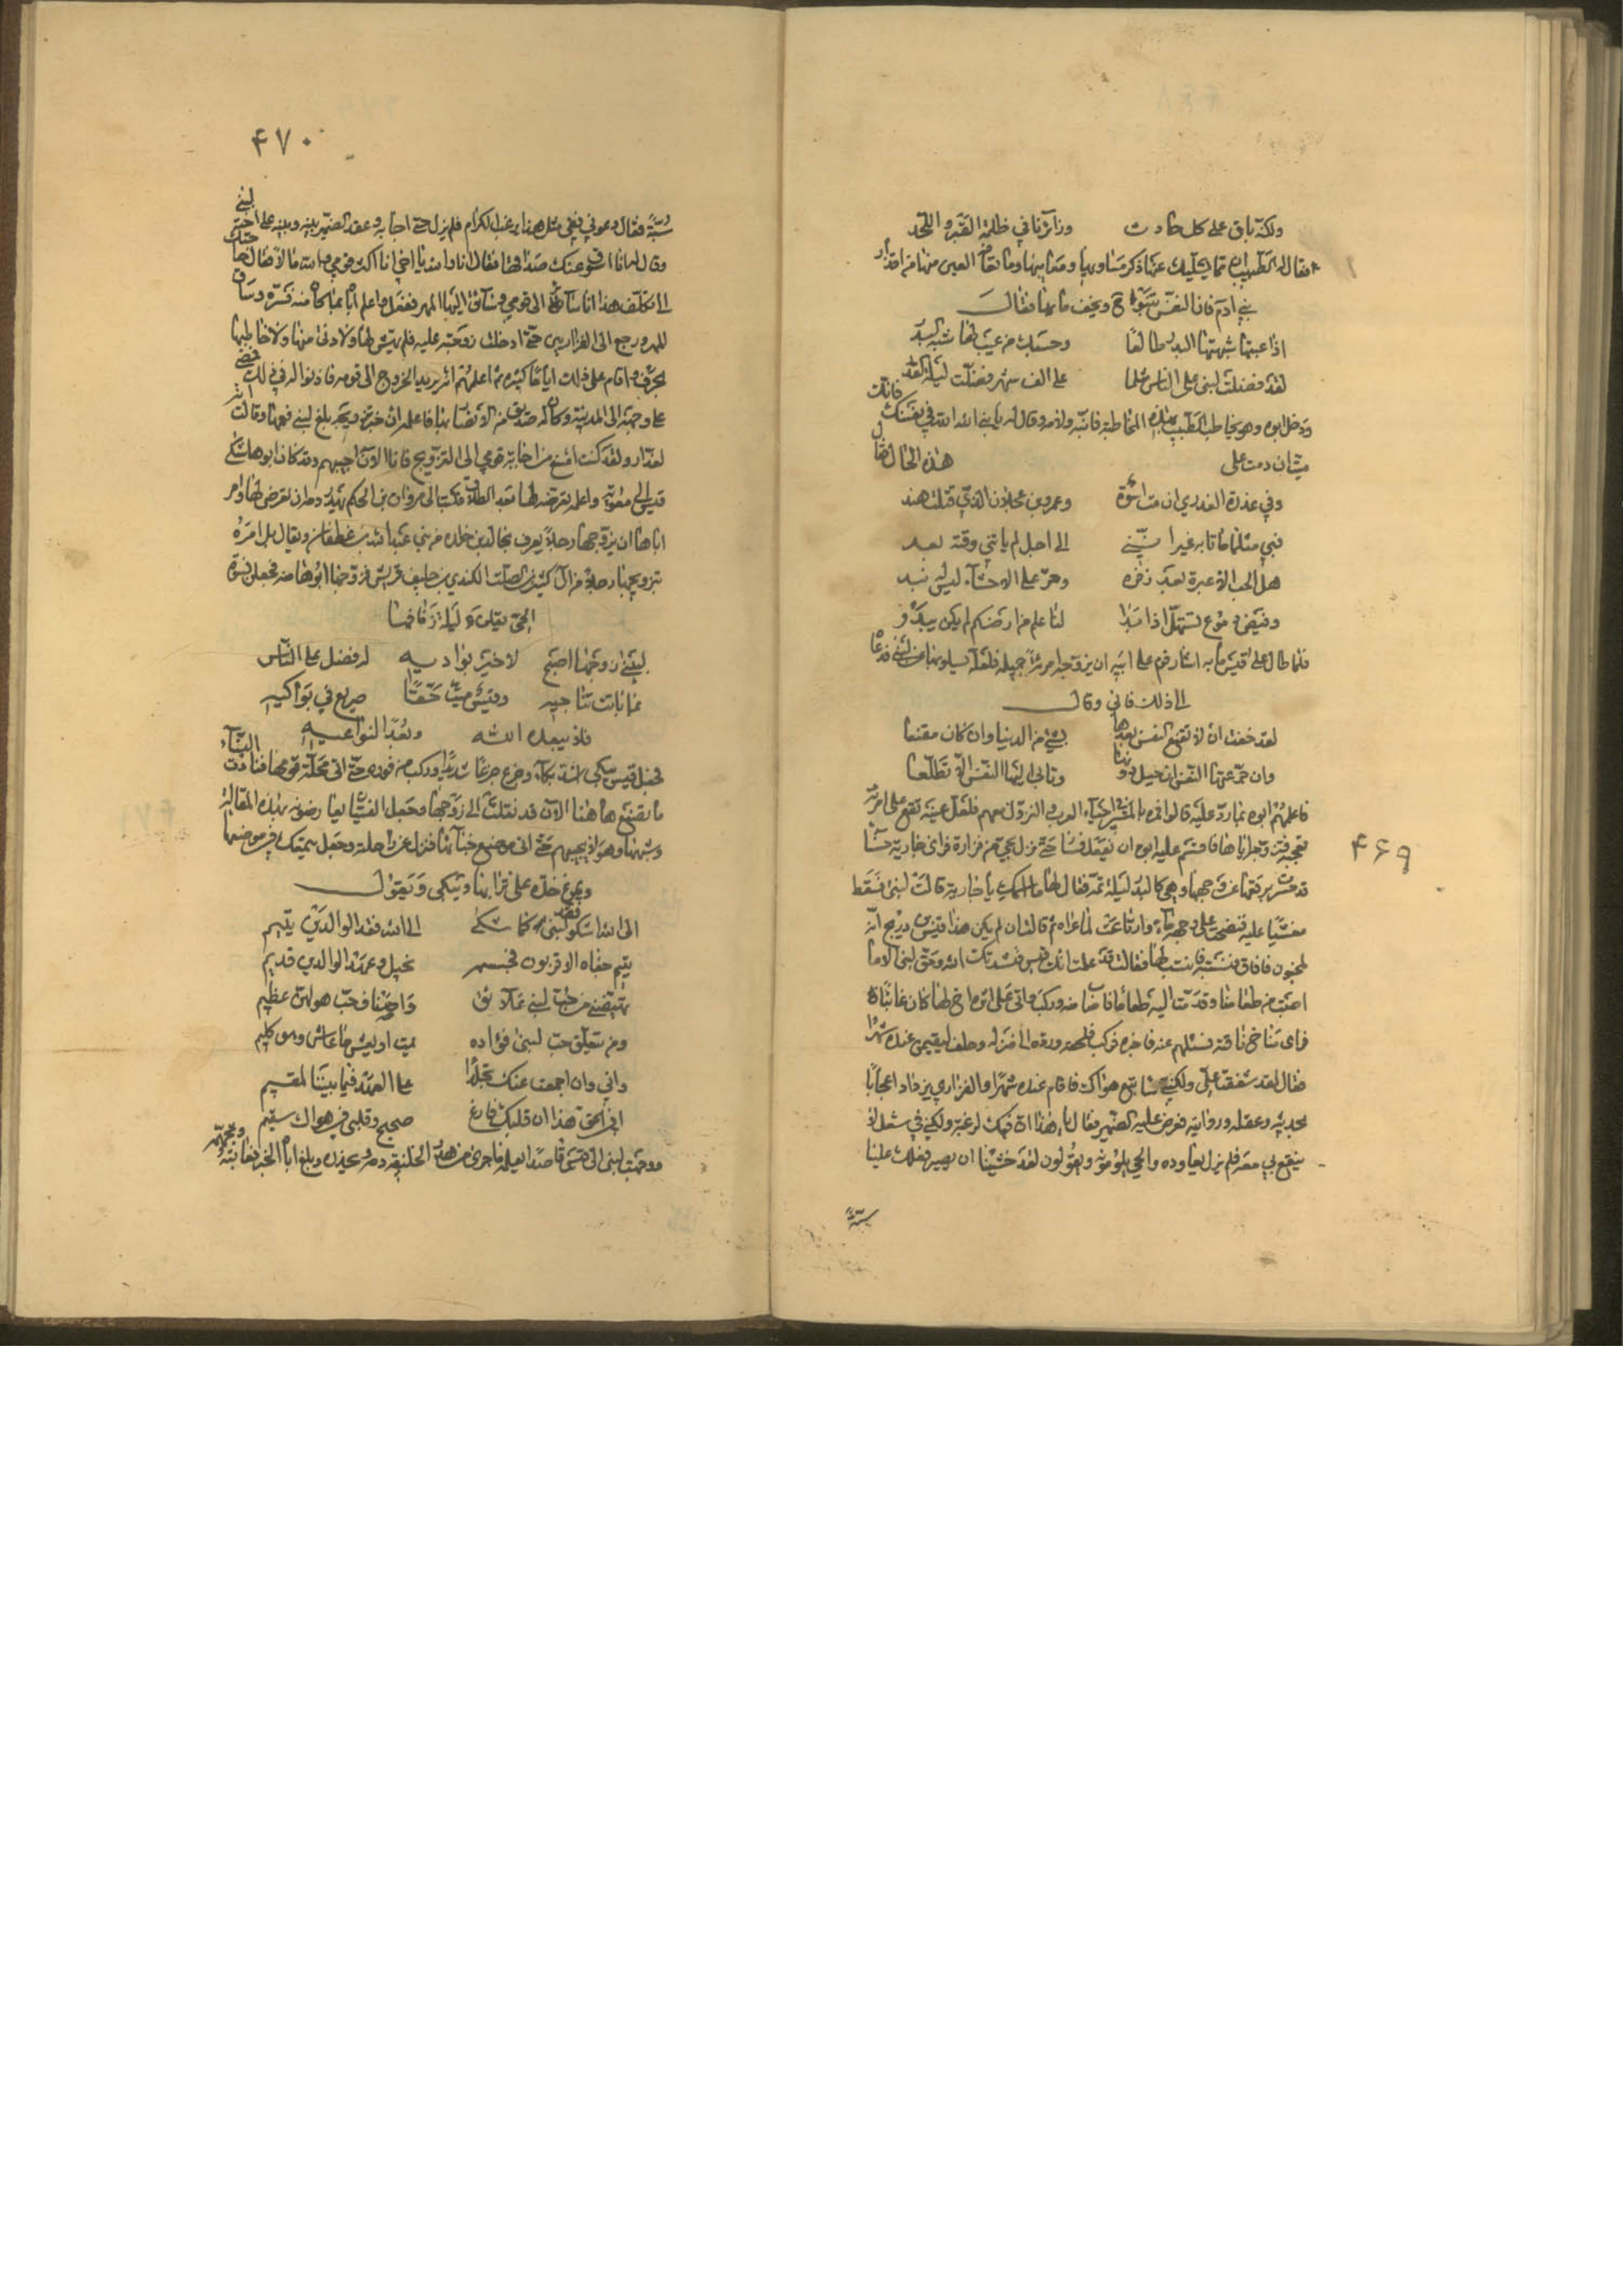 ۴۶۹
ولكنه باق على كل حادث وزائرنا في ظلمة القبر واللحد
فقال له الطبيب ان مما يسليك عنها ذكر مساويها ومعايبها وما تعافه العين منها من اقذار
بني ادم فان النفس تسلو ح ويخف ما بها فقال
اذا عبتها شبهتها البدر طالعا وحسبك من عيب لها شبه البدر
لقد فضلت لبنى على الناس مثلما على الف شهر فضلت ليلة القدر
ودخل ابوه وهو يخاطب الطبيب بهذه المخاطبة فانبه ولامه وقال له يا بني الله الله في نفسك فانك
ميت ان دمت على هذه الحال فقال
وفي عذرة العذري ان مت اسوة وعمرو بن عجلان الذي قتلت هند
فبي مثلما ماتا به غير انني الى اجل لم ياتني وقته بعد
هل الحب الا عبرة بعد زفرة وحر على الاحشاء ليس له برد
وفيض دموع تستهل اذا بدا لنا علم من ارضكم لم يكن يبدو
فلما طال على قيس ما به اشار قومه على ابيه ان يزوجه امرأة جميلة فلعله يسلو بها عن لبنى فدعاه
الى ذلك فابى وقال
لقد خفت ان لا تقنع النفس بعدها بشيء من الدنيا وان كان مقنعا
وازجر عنها النفس ان حيل دونها وتابى اليها النفس الا تطلعا
فاعلمهم ابوه بما رد عليه قالوا فمره بالمسير في احياء العرب والنزول عليهم فلعل عينه تقع على امرأة
تعجبه فتزوجه اياها فاقسم عليه ابوه ان يفعل فسار حتى نزل بحي من فزارة فراى جارية حسناء
قد حسرت برقعها عن وجهها وهي كالبدر ليلة تمه فقال لها ما اسمك يا جارية قالت لبنى فسقط
مغشيا عليه فنضحت على وجهه ماء وارتاعت لما عراه ثم قالت ان لم يكن هذا قيس بن ذريح انه
لمجنون فافاق فنسبته فانتسب لها فقالت قد علمت انك قيس نشدتك الله وبحق لبنى الا ما
اصبت من طعامنا وقدمت اليه طعاما فاصاب منه وركب واتى على اثره اخ لها كان غائبا
فراى مناخ ناقته فسئلهم عنه فاخبروه فركب فلحقه ورده الى منزله وحلف ليقيمن عنده شهرا
فقال لقد شققت على ولكني ساتبع هواك فاقام عنده شهرا والفزاري يزداد اعجابا
بحديثه وعقله وروايته فعرض عليه الصهر فقال له يا هذا ان فيك لرغبة ولكني في شغل لا
ينتفع بي معه فلم يزل يعاوده والحي يلومونه ويقولون لقد خشينا ان يصير فعلك علينا
سبة
۴۷۰
سبة فقال دعوني ففي مثل هذا يرغب الكرام فلم يزل حتى اجابه وعقد الصهر بينه وبينه على اخته لبنى
وقال له انا اسوق عنك صداقها فقال انا والله يا اخي انا اكثر قومي مالا فما حاجتك
الى تكلف هذا انا سائر الى قومي وسائق اليها المهر ففعل واعلم اباه بما كان منه فسره وساق
المهر ورجع الى الفزاريين حتى ادخلت زوجته عليه فلم يهش لها ولا دنى منها ولا خاطبها
بحرف واقام على ذلك اياما كثيرة ثم اعلمهم انه يريد الخروج الى قومه فاذنوا له في ذلك فمضى
على وجهه الى المدينة وكان له صديق من الانصار بها فاعلمه ان خبر تزويجه بلغ لبنى فغمها وقالت انه
لغدار ولقد كنت امتنع من اجابة قومي الى التزويج فانا الان اجيبهم وقد كان ابوها شكى
قيسا الى معوية واعلمه تعرضه لها بعد الطلاق فكتب الى مروان بن الحكم يهدر دمه ان تعرض لها وامر
اباها ان يزوجها رجلا يعرف بخالد بن خلدة من بني عبد الله بن غطفان ويقال بل امره
بتزويجها رجلا من آل كثير بن الصلت الكندي حليف قريش فزوجها ابوها منه فجعل نسوة
الحي يقلن ليلة زفافها
لبينى زوجها اصبح لا خير بواديه له فضل على الناس
بما باتت تناجيه وقيس ميت حقا صريع في بواكيه
فلا يبعده الله وبعدا لنواعيه
فجعل قيس يبكي اشد بكاء وجزع جزعا شديدا وركب من فوره حتى اتى محلة قومها فنادته النساء
ما تصنع ها هنا الان قد نقلت الى زوجها وجعل الفتيان يعارضونه بهذه المقالة
وشبهها وهو لا يجيبهم حتى اتى موضع خبائها فنزل عن راحلته وجعل يتمعك في موضعها
ويمرغ خده على ترابها ويبكي ويقول
الى الله اشكو فقد لبنى كما شكى الى الله فقد الوالدين يتيم
يتيم جفاه الاقربون فجسمه نحيل وعهد الوالدين قديم
ومن يتعلق حب لبنى فؤاده يمت او يعش ما عاش وهو كليم
واني وان اجمعت عنك تجلدا على العهد فيما بيننا لمقيم
افي الحق هذا ان قلبك فارغ صحيح وقلبي في هواك سقيم